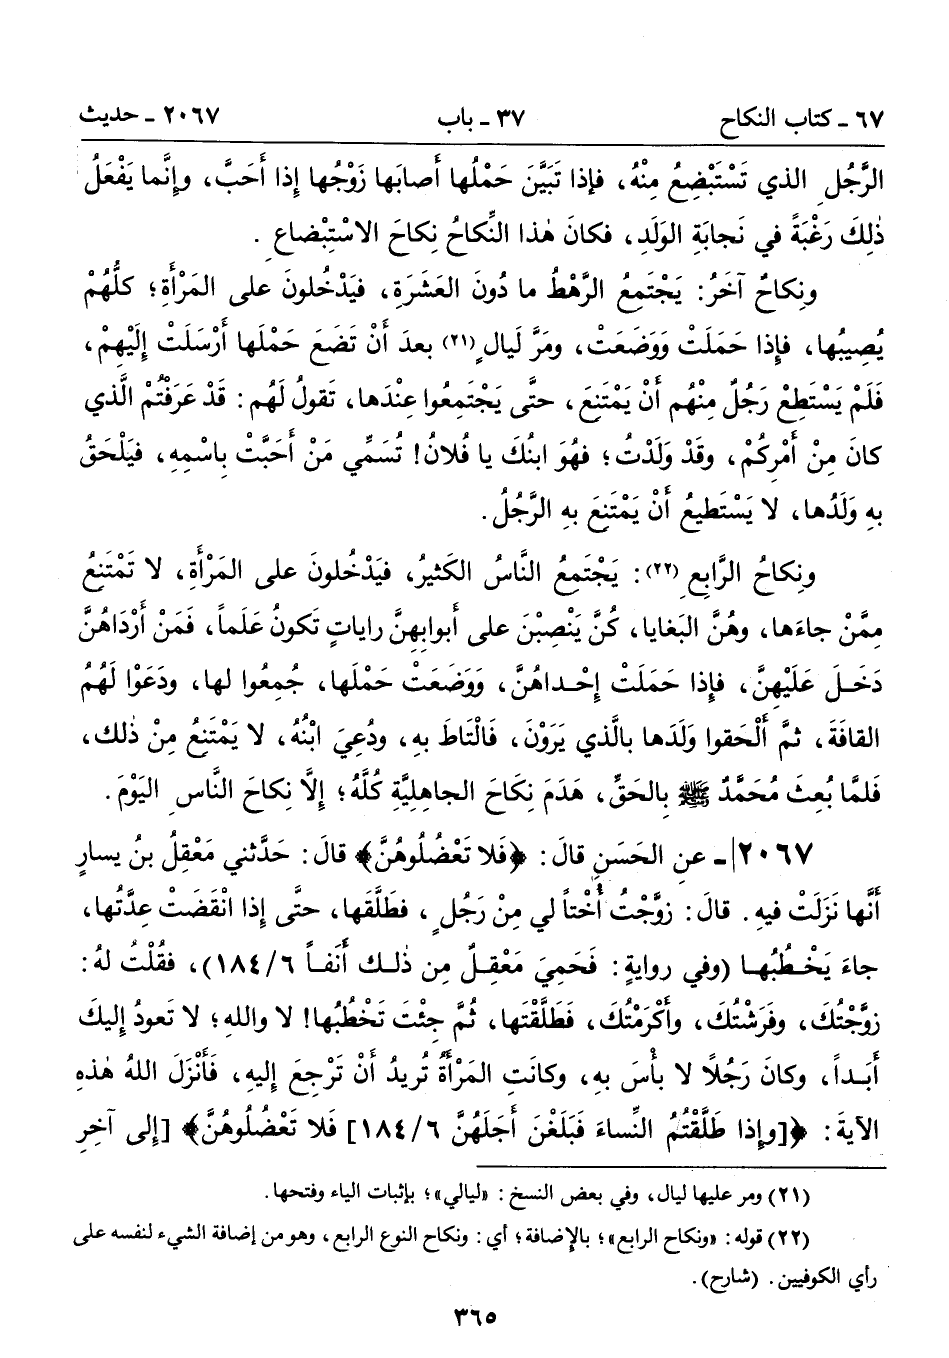 ٦٧ ـ كتاب النكاح ٣٧ ـ باب ٢٠٦٧ ـ حديث
الرَّجُلِ الذي تَسْتَبْضِعُ مِنْهُ، فإذا تَبَيَّنَ حَمْلُها أصابَها زَوْجُها إذا أَحَبَّ، وإنَّما يَفْعَلُ
ذٰلِكَ رَغْبَةً في نَجابَةِ الوَلَدِ، فكانَ هٰذا النِّكاحُ نِكاحَ الاسْتِبْضاعِ.
ونِكاحٌ آخَرُ: يَجْتَمِعُ الرَّهْطُ ما دُونَ العَشَرَةِ، فيَدْخُلونَ على المَرْأَةِ؛ كلُّهُمْ
يُصِيبُها، فإذا حَمَلَتْ وَوَضَعَتْ، ومَرَّ لَيالٍ (٢١) بعدَ أَنْ تَضَعَ حَمْلَها أَرْسَلَتْ إِلَيْهِمْ،
فَلَمْ يَسْتَطِعْ رَجُلٌ مِنْهُم أَنْ يَمْتَنِعَ، حتَّى يَجْتَمِعُوا عِنْدَها، تَقولُ لَهُم: قَدْ عَرَفْتُم الَّذي
كانَ مِنْ أَمْرِكُمْ، وقَدْ وَلَدْتُ؛ فهُوَ ابنُكَ يا فُلانُ! تُسَمِّي مَنْ أَحَبَّتْ بِاسْمِهِ، فيَلْحَقُ
بهِ وَلَدُها، لا يَسْتَطيعُ أَنْ يَمْتَنِعَ بهِ الرَّجُلُ.
ونِكاحُ الرَّابِعِ (٢٢): يَجْتَمِعُ النَّاسُ الكَثيرُ، فيَدْخُلونَ على المَرْأَةِ، لا تَمْتَنِعُ
مِمَّنْ جاءَها، وهُنَّ البَغايا، كُنَّ يَنْصِبْنَ على أَبوابِهِنَّ راياتٍ تَكونُ عَلَماً، فَمَنْ أَرْدَاهُنَّ
دَخَلَ عَلَيْهِنَّ، فإذا حَمَلَتْ إِحْداهُنَّ، وَوَضَعَتْ حَمْلَها، جُمِعُوا لها، ودَعَوْا لَهُمُ
القافَةَ، ثمَّ أَلْحَقوا وَلَدَها بالَّذي يَرَوْنَ، فَالْتَاطَ بهِ، ودُعِيَ ابْنُهُ، لا يَمْتَنِعُ مِنْ ذٰلك،
فَلمَّا بُعِثَ مُحَمَّدٌ ﷺ بِالحَقِّ، هَدَمَ نِكاحَ الجاهِليَّةِ كُلَّهُ؛ إلَّا نِكاحَ النَّاسِ اليَوْمَ.
٢٠٦٧ ـ عن الحَسَنِ قالَ: ﴿فَلا تَعْضُلُوهُنَّ﴾ قالَ: حَدَّثني مَعْقِلُ بنُ يسارٍ
أَنَّها نَزَلَتْ فيهِ. قالَ: زوَّجْتُ أُخْتاً لي مِنْ رَجُلٍ، فطَلَّقَها، حتَّى إذا انْقَضَتْ عِدَّتُها،
جاءَ يَخْطُبُها (وفي روايةٍ: فَحَمِيَ مَعْقِلٌ مِن ذٰلك أَنَفاً ٦/١٨٤)، فقُلْتُ لهُ:
زوَّجْتُكَ، وفَرَشْتُكَ، وأَكْرَمْتُكَ، فَطَلَّقْتَها، ثمَّ جِئْتَ تَخْطُبُها! لا واللهِ؛ لا تَعودُ إليكَ
أَبَداً، وكانَ رَجُلاً لا بأْسَ بهِ، وكانَتِ المَرْأَةُ تُريدُ أَنْ تَرْجِعَ إليهِ، فَأَنْزَلَ اللهُ هٰذهِ
الآيةَ: ﴿[وإذا طَلَّقْتُمُ النِّساءَ فَبَلَغْنَ أَجَلَهُنَّ ٦/١٨٤] فَلا تَعْضُلُوهُنَّ﴾ [إلى آخِرِ
(٢١) ومر عليها ليال، وفي بعض النسخ: «ليالي»؛ بإثبات الياء وفتحها.
(٢٢) قوله: «ونكاح الرابع»؛ بالإضافة؛ أي: ونكاح النوع الرابع، وهو من إضافة الشيء لنفسه على
رأي الكوفيين. (شارح).
٣٦٥